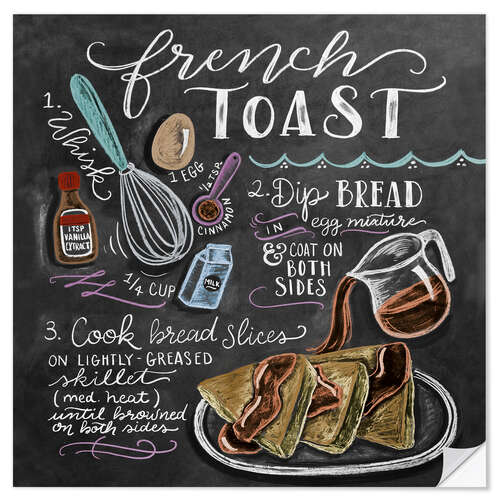 french
TOAST
1.
Whisk
1 EGG
1/2 TSP
CINNAMON
1 TSP
VANILLA
EXTRACT
1/4 CUP
MILK
2. Dip BREAD
IN egg mixture
& COAT ON
BOTH
SIDES
3. Cook bread slices
ON LIGHTLY-GREASED
skillet
(med. heat)
until browned
on both sides